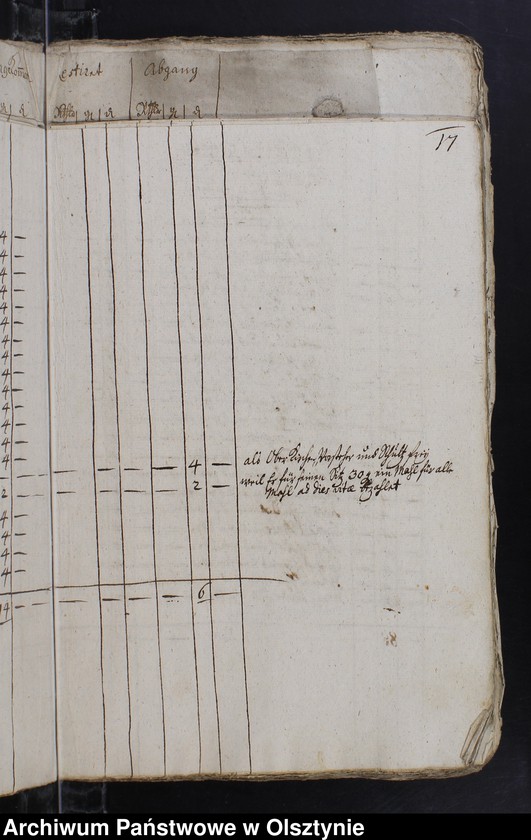 restiret Abgang
Rthlr g ₰ Rthlr g ₰
17
4 —
4 —
4 —
4 —
4 —
4 —
4 —
4 —
4 —
4 —
4 —
4 —
4 —
4 —
— — — — 4 — als Ober Kirchen Vorsteher und Schultz frey
2 — — — — — 2 — weil Er für seinen Sitz 30 g ein Mahl für alle
Mahl ad dies vitæ bezahlet
4 —
4 —
4 —
4 —
14 — — — — — 6 —
Archiwum Państwowe w Olsztynie